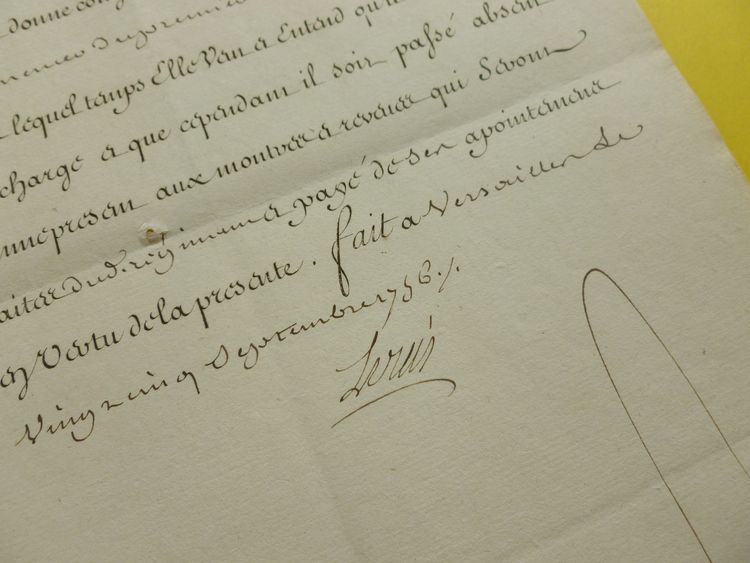 donne con
lequel temps Elle Veu a Entend qu'il
charge a que cependant il soit passé absent
present aux montres a reveues qui Seront
faites dud. regiment a payé de ses apointemens
en Vertu de la presente. fait a Versailles le
Vingt cinq Septembre 1756 ./.
Louis